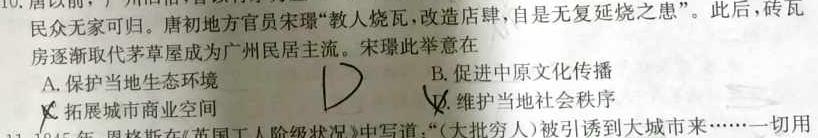 民众无家可归。唐初地方官员宋璟“教人烧瓦，改造店肆，自是无复延烧之患”。此后，砖瓦
房逐渐取代茅草屋成为广州民居主流。宋璟此举意在
A. 保护当地生态环境 D B. 促进中原文化传播
C. 拓展城市商业空间 D. 维护当地社会秩序
11.1845年，恩格斯在《英国工人阶级状况》中写道：“(大批穷人)被引诱到大城市来……一切用